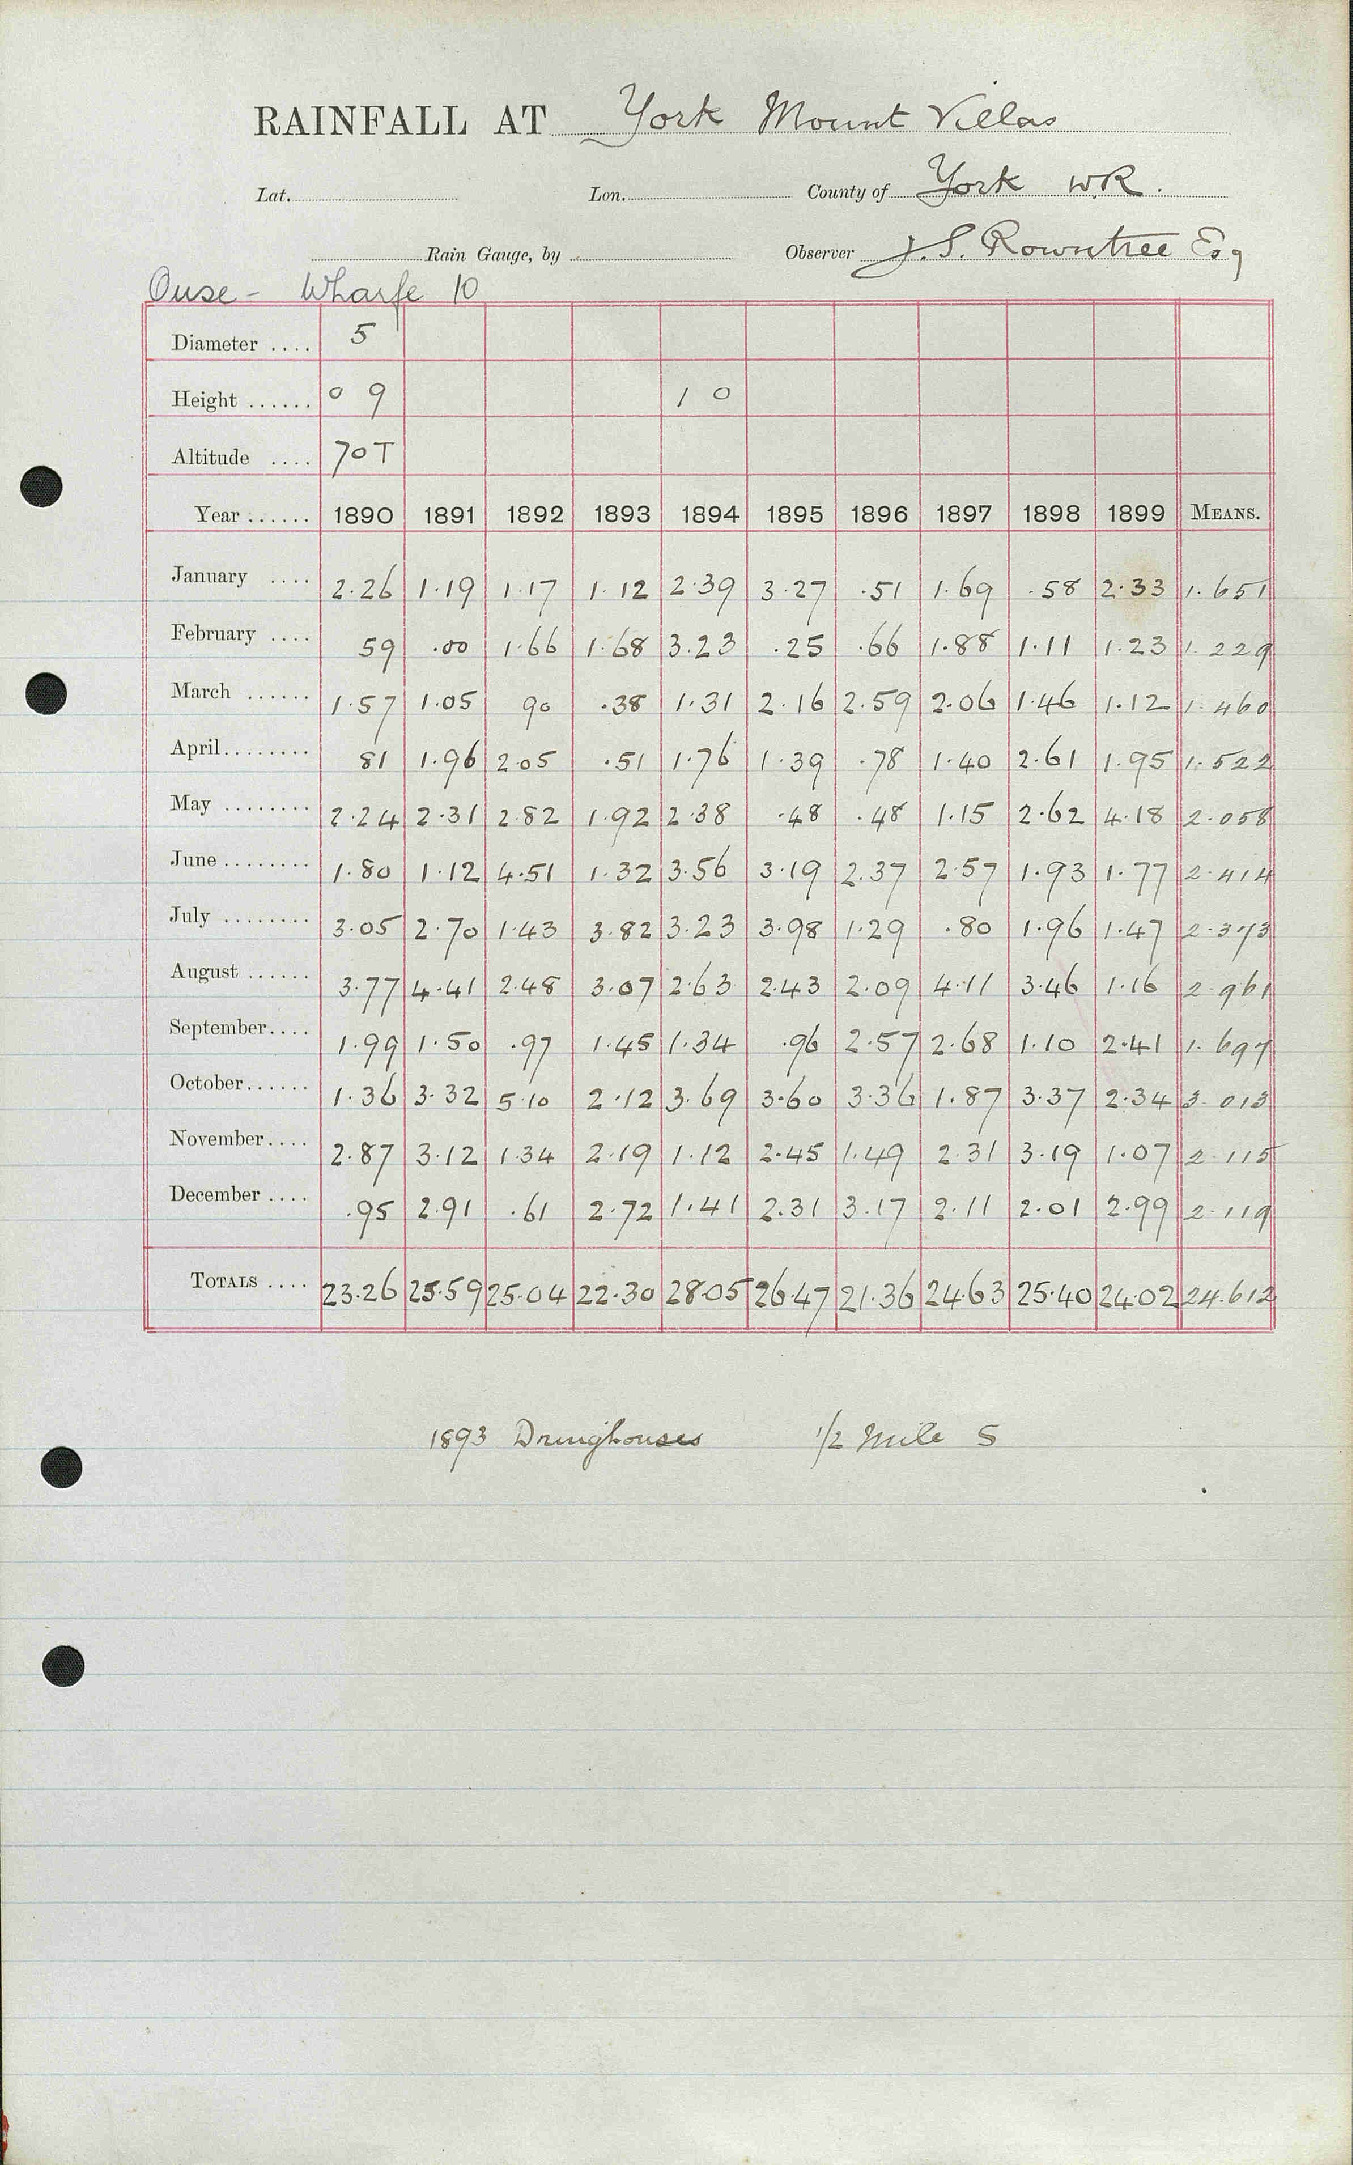 RAINFALL AT York Mount Villas
Lat. Lon. County of York W.R.
Rain Gauge, by Observer J. S. Rowntree Esq
Ouse - Wharfe 10
Diameter .... 5
Height ...... 0 9 1 0
Altitude .... 70 T
Year ...... 1890 1891 1892 1893 1894 1895 1896 1897 1898 1899 MEANS.
January .... 2.26 1.19 1.17 1.12 2.39 3.27 .51 1.69 .58 2.33 1.651
February .... 59 .00 1.66 1.68 3.23 .25 .66 1.88 1.11 1.23 1.229
March ...... 1.57 1.05 90 .38 1.31 2.16 2.59 2.06 1.46 1.12 1.460
April........ 81 1.96 2.05 .51 1.76 1.39 .78 1.40 2.61 1.95 1.522
May ........ 2.24 2.31 2.82 1.92 2.38 .48 .48 1.15 2.62 4.18 2.058
June ........ 1.80 1.12 4.51 1.32 3.56 3.19 2.37 2.57 1.93 1.77 2.414
July ........ 3.05 2.70 1.43 3.82 3.23 3.98 1.29 .80 1.96 1.47 2.373
August ...... 3.77 4.41 2.48 3.07 2.63 2.43 2.09 4.11 3.46 1.16 2.961
September.... 1.99 1.50 .97 1.45 1.34 .96 2.57 2.68 1.10 2.41 1.697
October...... 1.36 3.32 5.10 2.12 3.69 3.60 3.36 1.87 3.37 2.34 3.013
November.... 2.87 3.12 1.34 2.19 1.12 2.45 1.49 2.31 3.19 1.07 2.115
December .... .95 2.91 .61 2.72 1.41 2.31 3.17 2.11 2.01 2.99 2.119
TOTALS .... 23.26 25.59 25.04 22.30 28.05 26.47 21.36 24.63 25.40 24.02 24.612
1893 Dringhouses 1/2 Mile S